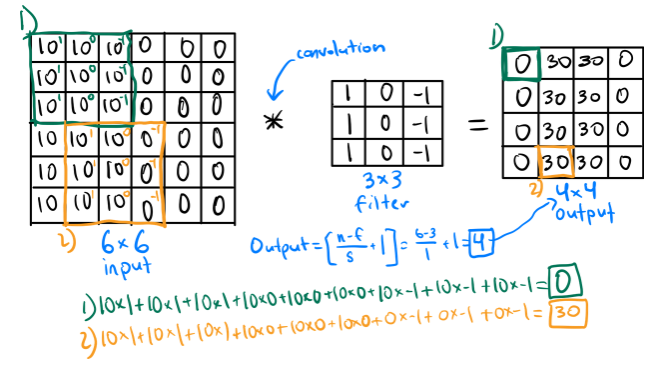 1)
10¹ 10⁰ 10⁻¹ 0 0 0
10¹ 10⁰ 10⁻¹ 0 0 0
10¹ 10⁰ 10⁻¹ 0 0 0
10 10¹ 10⁰ 0⁻¹ 0 0
10 10¹ 10⁰ 0⁻¹ 0 0
10 10¹ 10⁰ 0⁻¹ 0 0
2)
6×6
input
convolution
*
1 0 -1
1 0 -1
1 0 -1
3×3
filter
=
1)
0 30 30 0
0 30 30 0
0 30 30 0
0 30 30 0
2)
4×4
output
Output=[n-f/s+1]=6-3/1+1=4
1)10×1+10×1+10×1+10×0+10×0+10×0+10×-1+10×-1+10×-1=0
2)10×1+10×1+10×1+10×0+10×0+10×0+0×-1+0×-1+0×-1=30